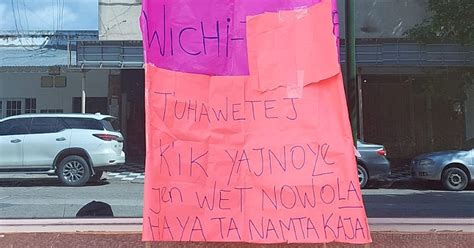 WICHI-
TUHAWETEJ
K'IK YAJNOYE
JEN WET NOWOLA
HAYA TA NAMTAKAJA